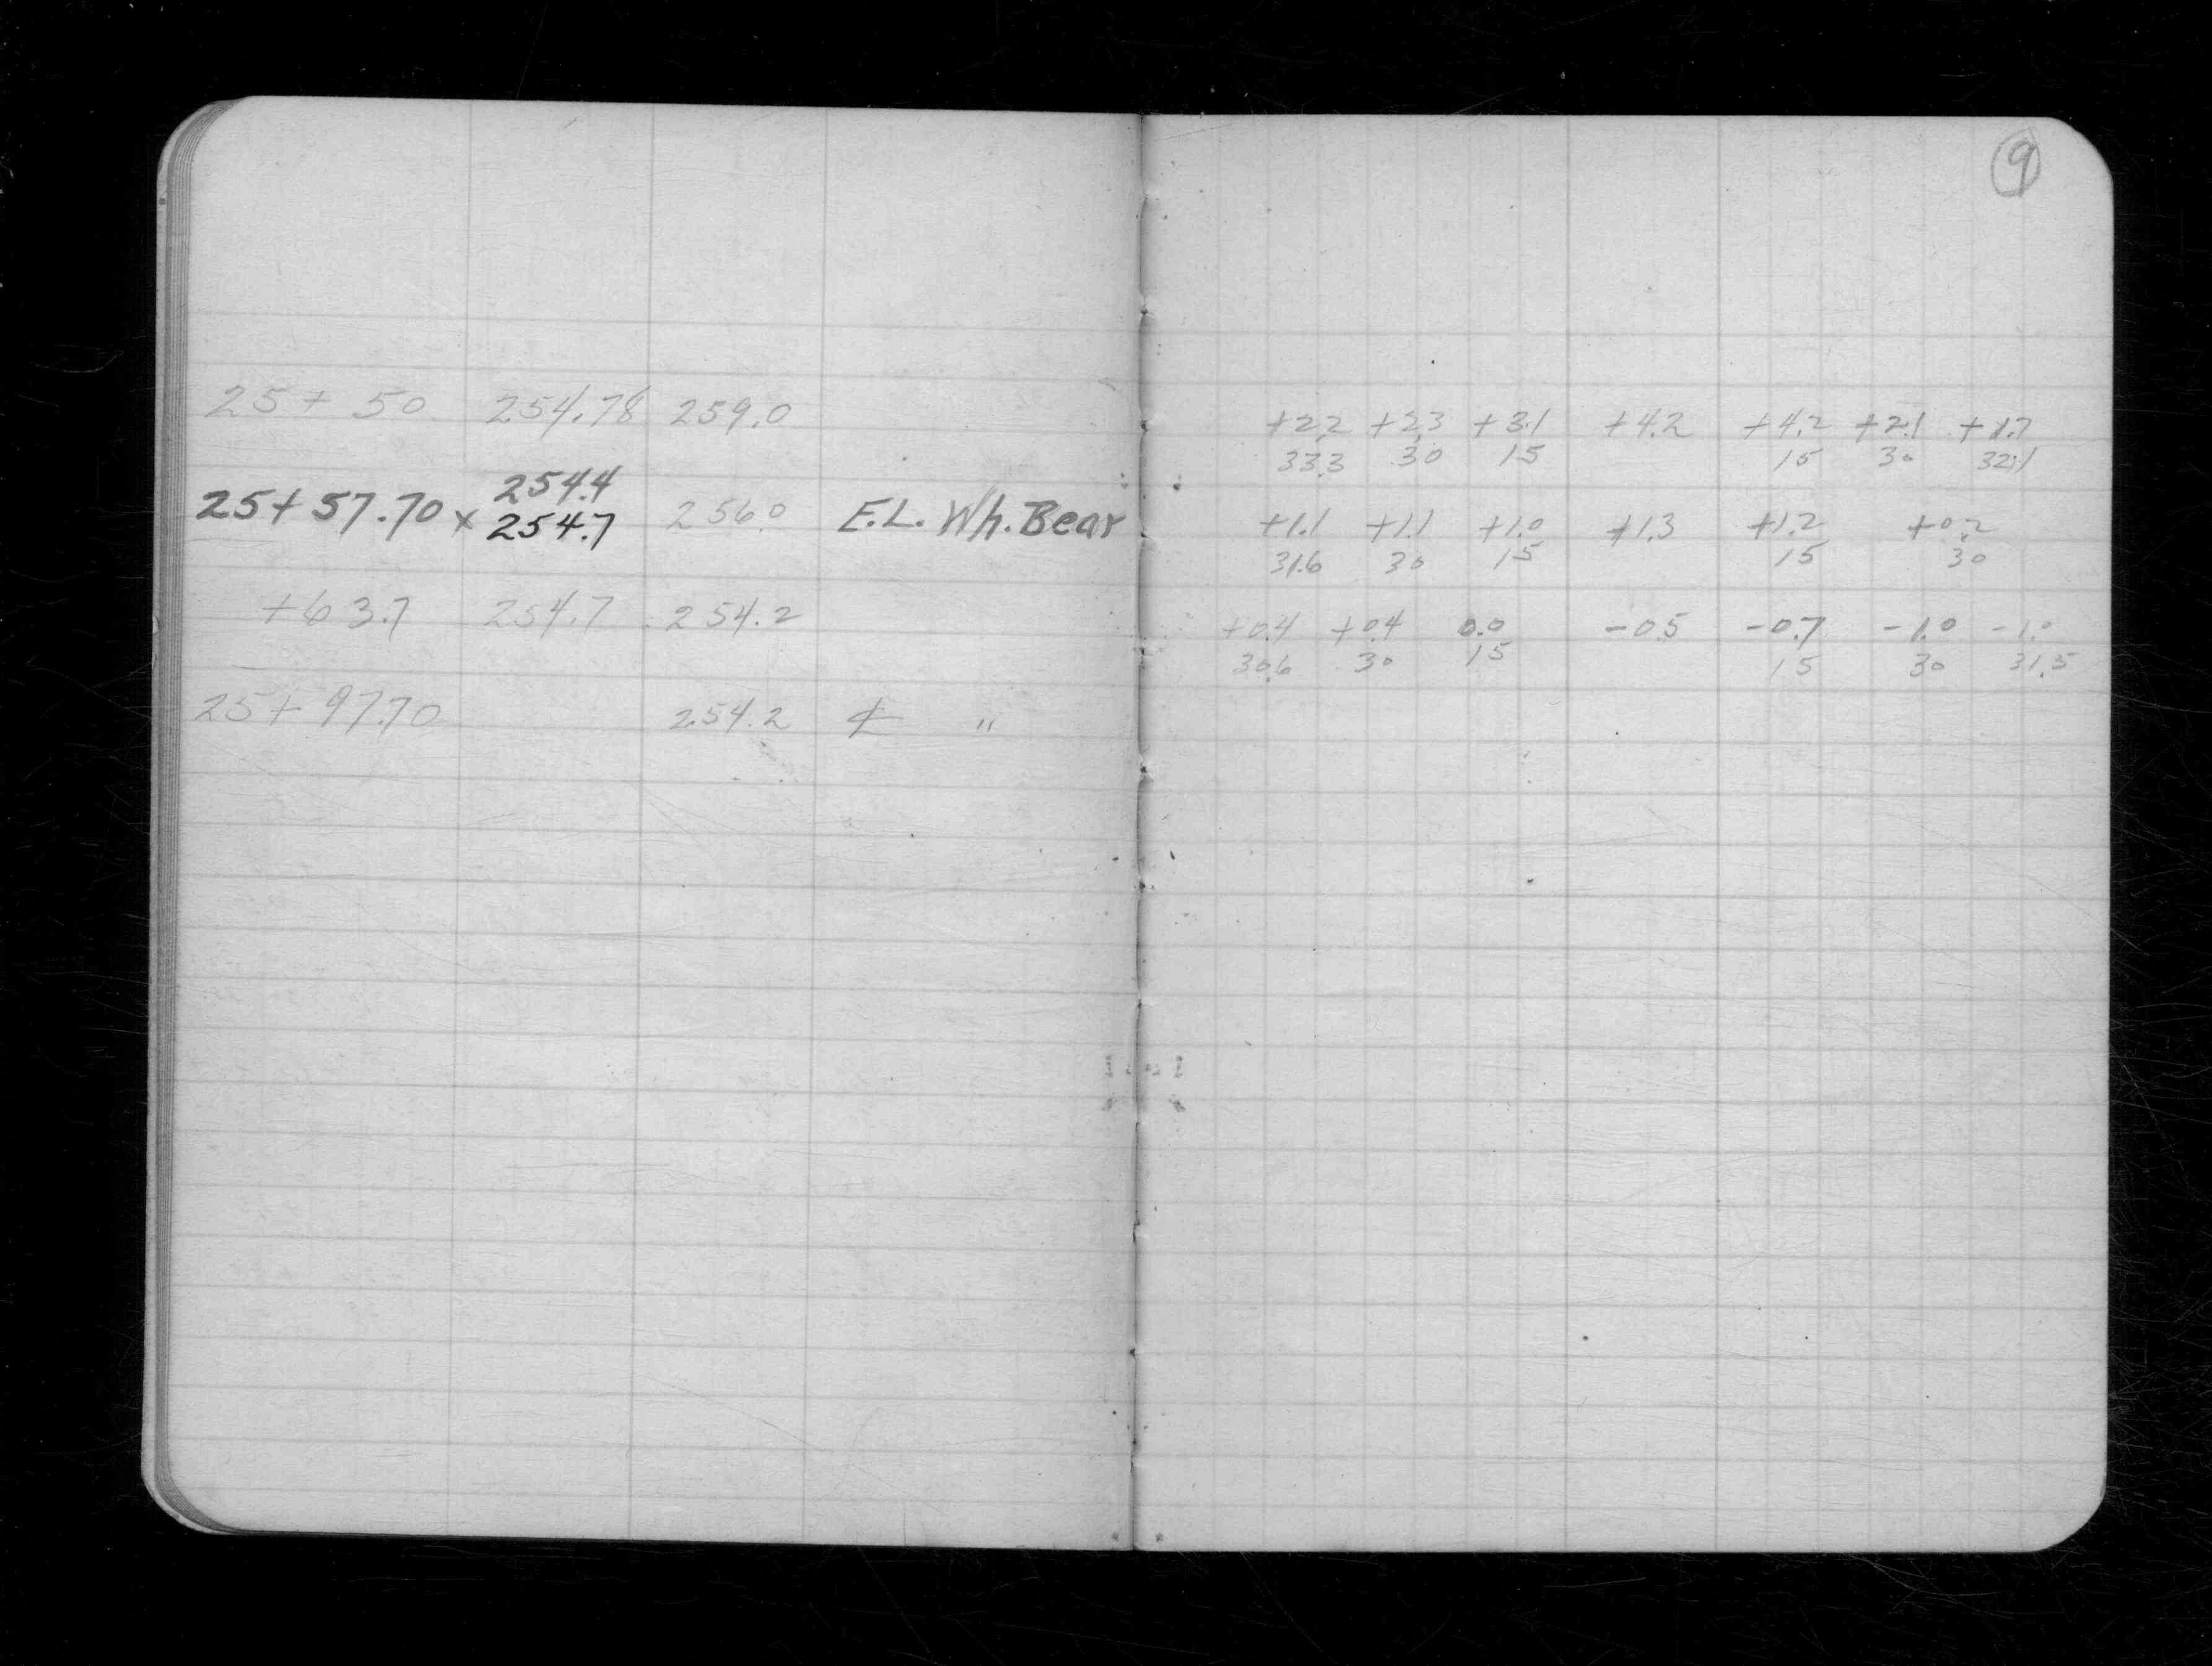 25+ 50 254.78 259.0
254.4
25+57.70 x 254.7 256.0 E.L. Wh. Bear
+63.7 254.7 254.2
25+97.70 254.2 ₵ "
9
+2.2 +2.3 +3.1 +4.2 +4.2 +2.1 +1.7
33.3 30 15 15 30 32.1
+1.1 +1.1 +1.0 +1.3 +1.2 +0.2
31.6 30 15 15 30
+0.4 +0.4 0.0 -0.5 -0.7 -1.0 -1.0
30.6 30 15 15 30 31.5